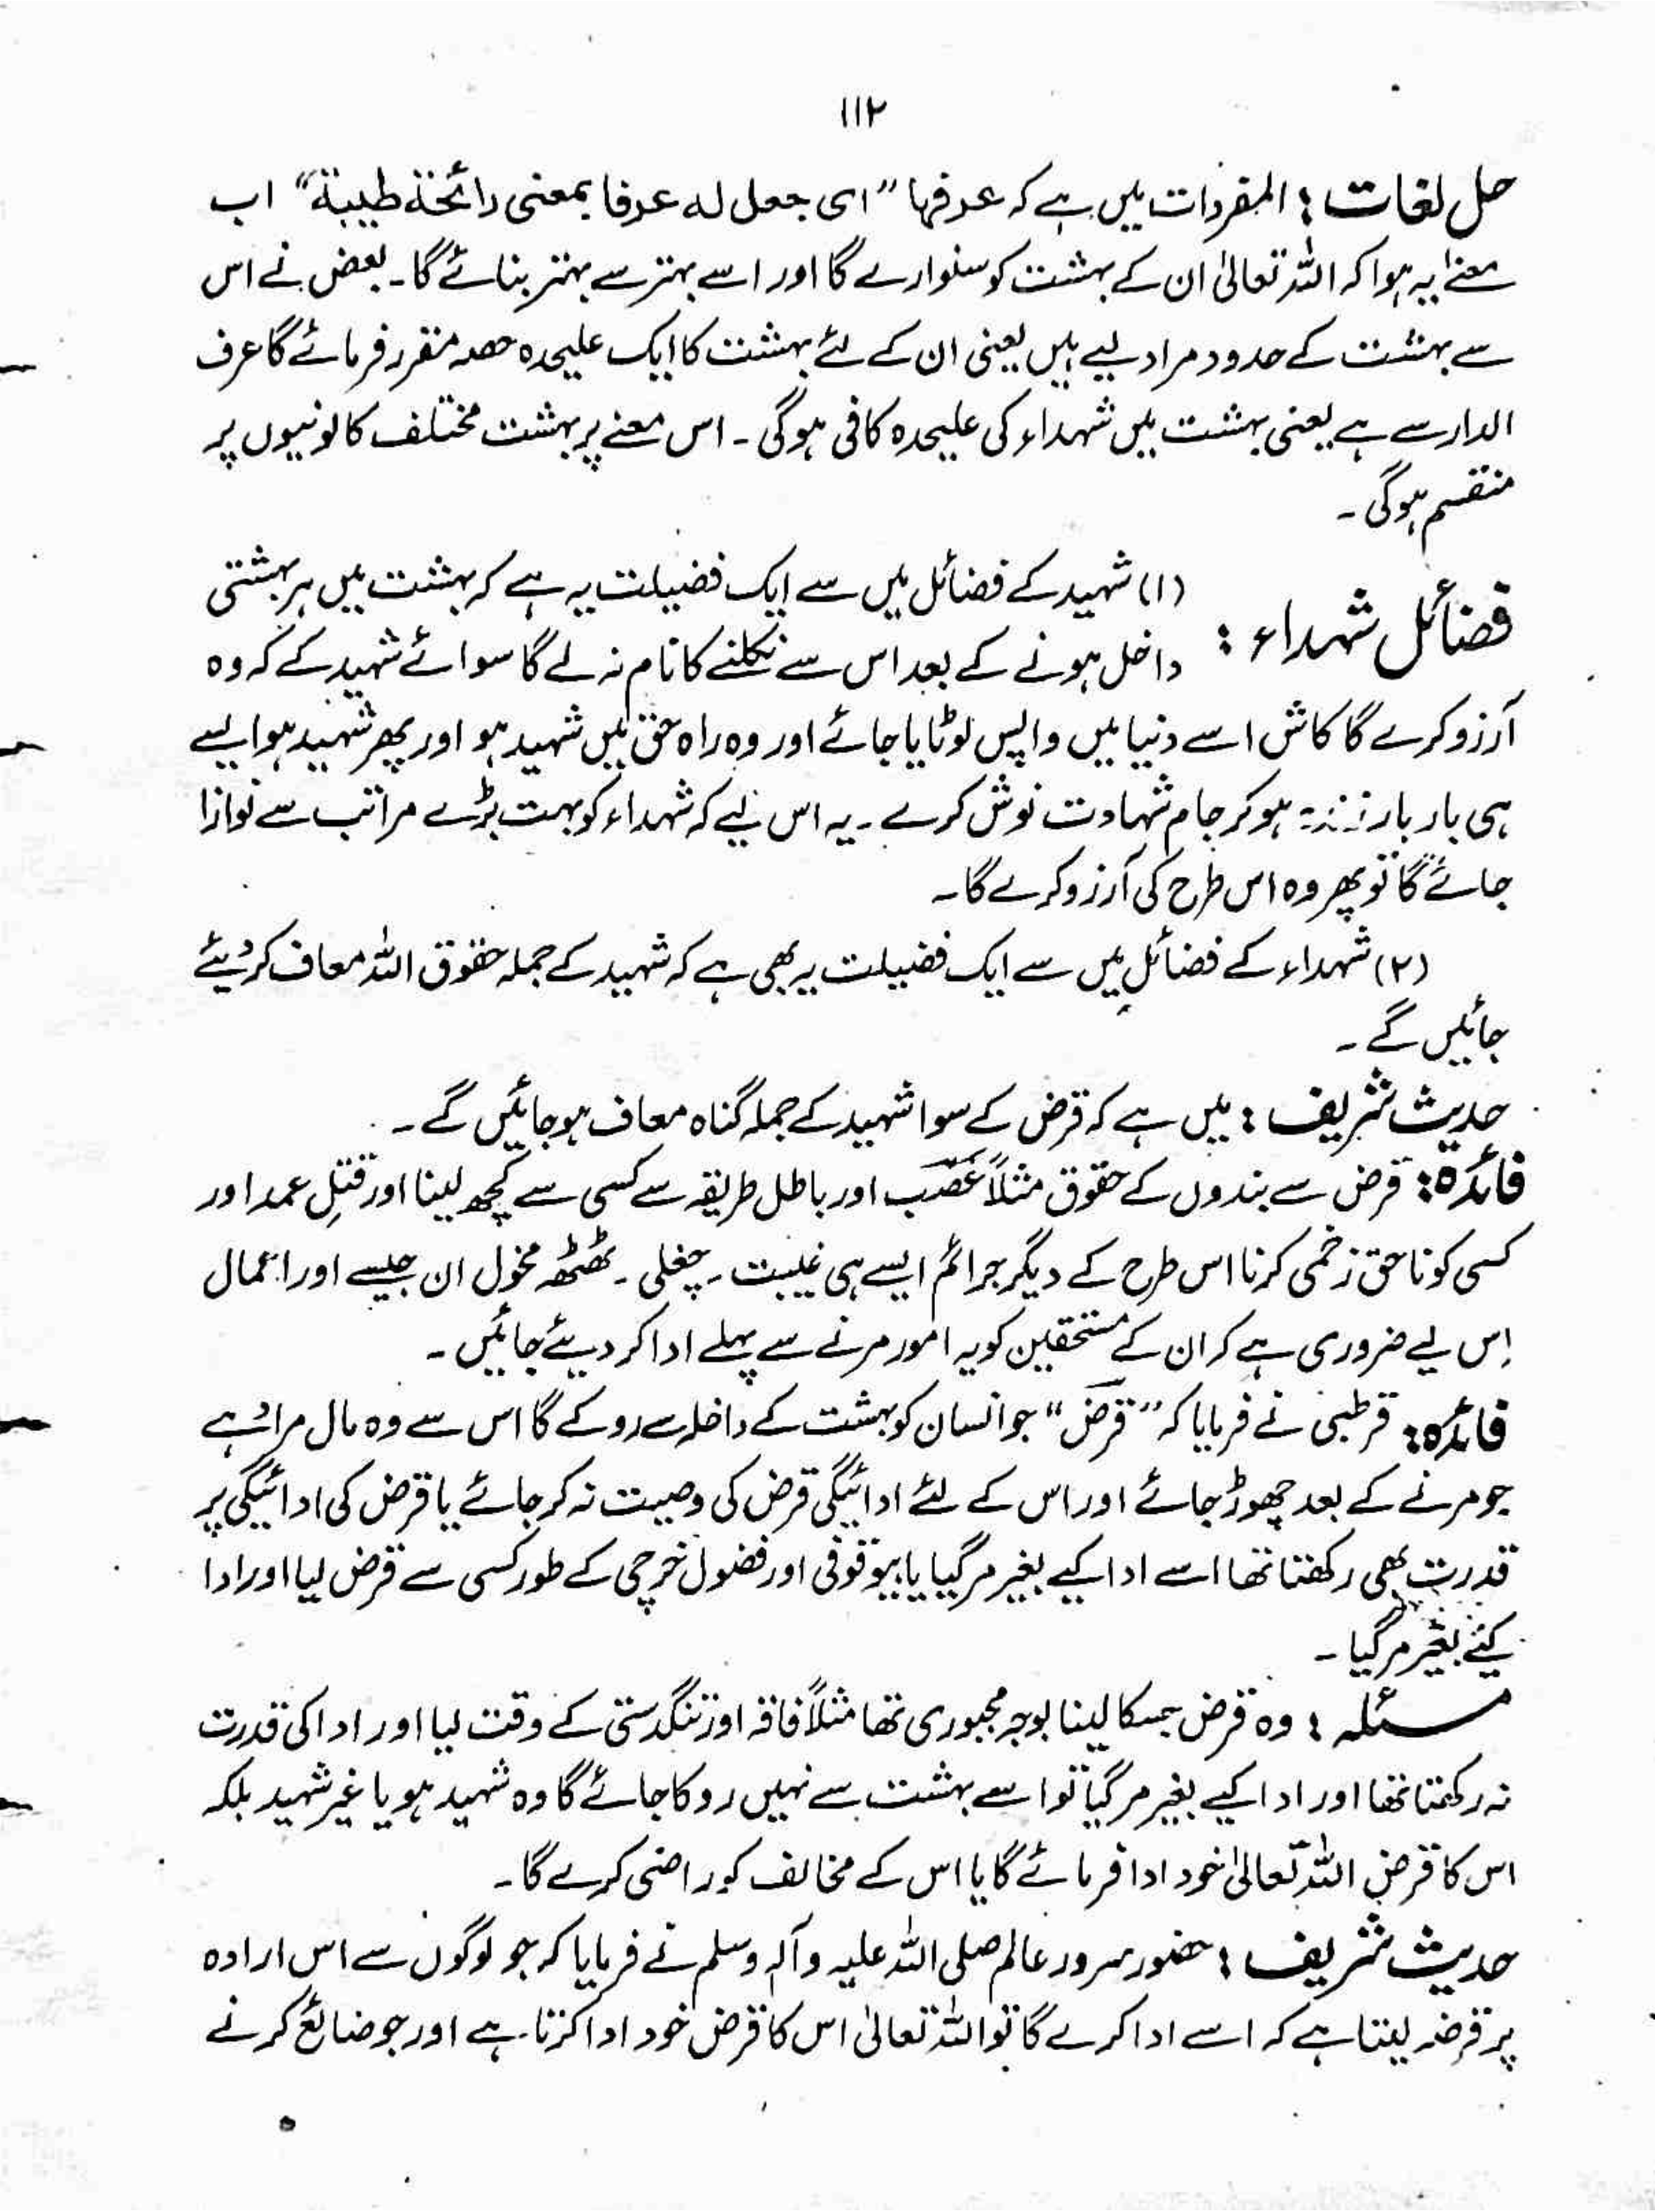 ۱۱۲
حل لغات : المفردات میں ہے کہ عرفہا "ای جعل له عرفا بمعنی رائحة طیبة" اب
معنے یہ ہوا کہ اللہ تعالیٰ ان کے بہشت کو سنوارے گا اور اسے بہتر سے بہتر بنائے گا۔ بعض نے اس
سے بہشت کے حدود مراد لیے ہیں یعنی ان کے لئے بہشت کا ایک علیحدہ حصہ مقرر فرمائے گا عرف
الدار سے ہے یعنی بہشت میں شہداء کی علیحدہ کافی ہوگی ۔ اس معنے پر بہشت مختلف کالونیوں پر
منقسم ہوگی ۔
فضائل شہداء : (۱) شہید کے فضائل میں سے ایک فضیلت یہ ہے کہ بہشت میں ہر بہشتی
داخل ہونے کے بعد اس سے نکلنے کا نام نہ لے گا سوائے شہید کے کہ وہ
آرزو کرے گا کاش اسے دنیا میں واپس لوٹایا جائے اور وہ راہ حق میں شہید ہو اور پھر شہید ہو ایسے
ہی بار بار زندہ ہو کر جام شہادت نوش کرے ۔ یہ اس لیے کہ شہداء کو بہت بڑے مراتب سے نوازا
جائے گا تو پھر وہ اس طرح کی آرزو کرے گا ۔
(۲) شہداء کے فضائل میں سے ایک فضیلت یہ بھی ہے کہ شہید کے جملہ حقوق اللہ معاف کر دئیے
جائیں گے ۔
حدیث شریف : میں ہے کہ قرض کے سوا شہید کے جملہ گناہ معاف ہو جائیں گے ۔
فائدہ : قرض سے بندوں کے حقوق مثلاً غصب اور باطل طریقہ سے کسی سے کچھ لینا اور قتلِ عمد اور
کسی کو ناحق زخمی کرنا اس طرح کے دیگر جرائم ایسے ہی غیبت ۔ چغلی ۔ ٹھٹھہ مخول ان جیسے اور اعمال
اِس لیے ضروری ہے کہ ان کے مستحقین کو یہ امور مرنے سے پہلے ادا کر دیئے جائیں ۔
فائدہ : قرطبی نے فرمایا کہ "قرض" جو انسان کو بہشت کے داخلہ سے روکے گا اس سے وہ مال مراد ہے
جو مرنے کے بعد چھوڑ جائے اور اس کے لئے ادائیگی قرض کی وصیت نہ کر جائے یا قرض کی ادائیگی پر
قدرت بھی رکھتا تھا اسے ادا کیے بغیر مر گیا یا بیوقوفی اور فضول خرچی کے طور کسی سے قرض لیا اور ادا
کیئے بغیر مر گیا ۔
مسئلہ : وہ قرض جسکا لینا بوجہ مجبوری تھا مثلاً فاقہ اور تنگدستی کے وقت لیا اور ادا کی قدرت
نہ رکھتا تھا اور ادا کیے بغیر مر گیا تو اسے بہشت سے نہیں روکا جائے گا وہ شہید ہو یا غیر شہید بلکہ
اس کا قرض اللہ تعالیٰ خود ادا فرمائے گا یا اس کے مخالف کو راضی کرے گا ۔
حدیث شریف : حضور سرور عالم صلی اللہ علیہ وآلہ وسلم نے فرمایا کہ جو لوگوں سے اس ارادہ
پر قرضہ لیتا ہے کہ اسے ادا کرے گا تو اللہ تعالیٰ اس کا قرض خود ادا کرتا ہے اور جو ضائع کرنے